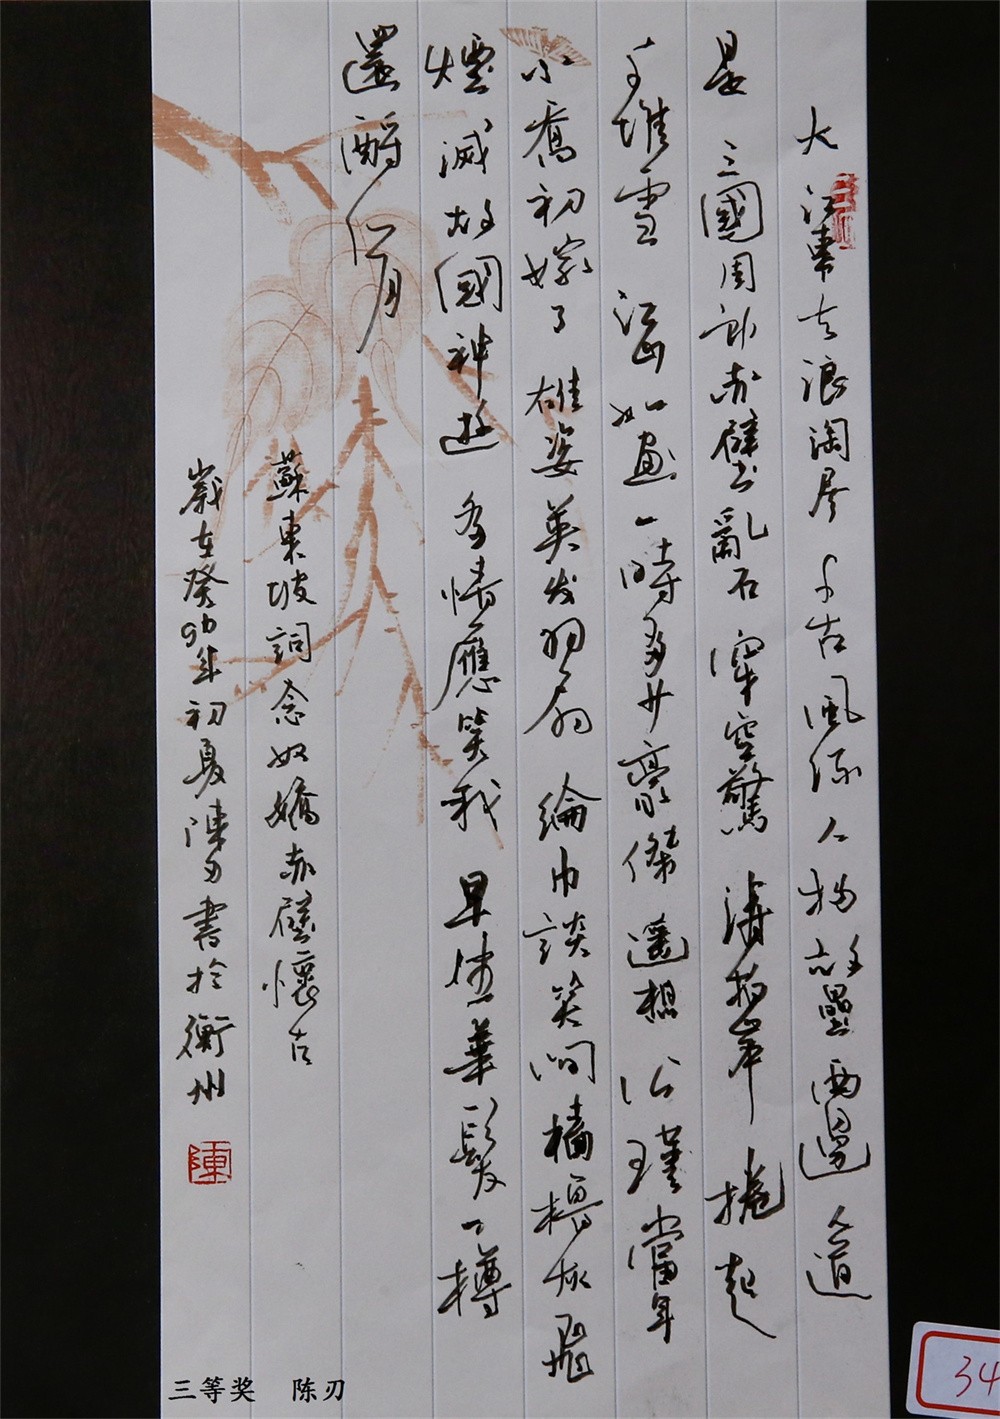 大江東去浪淘尽千古風流人物故壘西邊人道
是三國周郎赤壁亂石穿空驚濤拍岸捲起
千堆雪江山如畫一時多少豪傑遥想公瑾當年
小喬初嫁了雄姿英发羽扇綸巾談笑間檣櫓灰飛
煙滅故國神遊多情應笑我早生華髮一樽
還酹江月
蘇東坡詞念奴嬌赤壁懷古
歲在癸卯年初夏陳刃書於衡州
陳
三等奖 陈刃
34